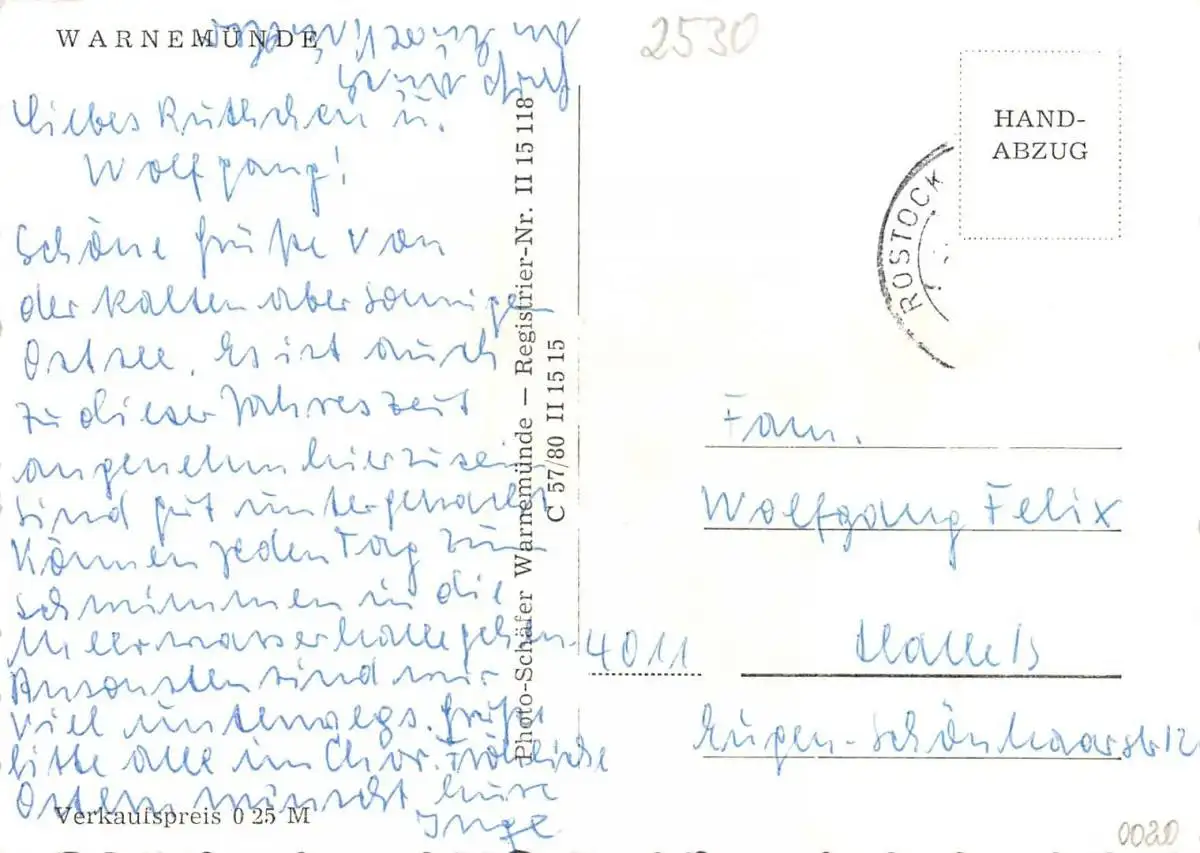 WARNEMÜNDE
Liebes Ruthchen u.
Wolfgang!
Schöne Grüße von
der kalten aber sonnigen
Ostsee. Es ist auch
zu dieser Jahreszeit
angenehm hier zu sein
sind gut untergebracht
Können jeden Tag zum
schwimmen in die
Meerwasserhalle gehen.
Ansonsten sind wir
viel unterwegs. Grüße
bitte alle im Chor. Fröhliche
Ostern wünscht Eure
Inge
Verkaufspreis 0 25 M
Photo-Schäfer Warnemünde — Registrier-Nr. II 15 118
C 57/80 II 15 15
2530
HAND-
ABZUG
ROSTOCK
Fam.
Wolfgang Felix
4011 Halle/S
Eugen-Schönhaarstr 12
0020